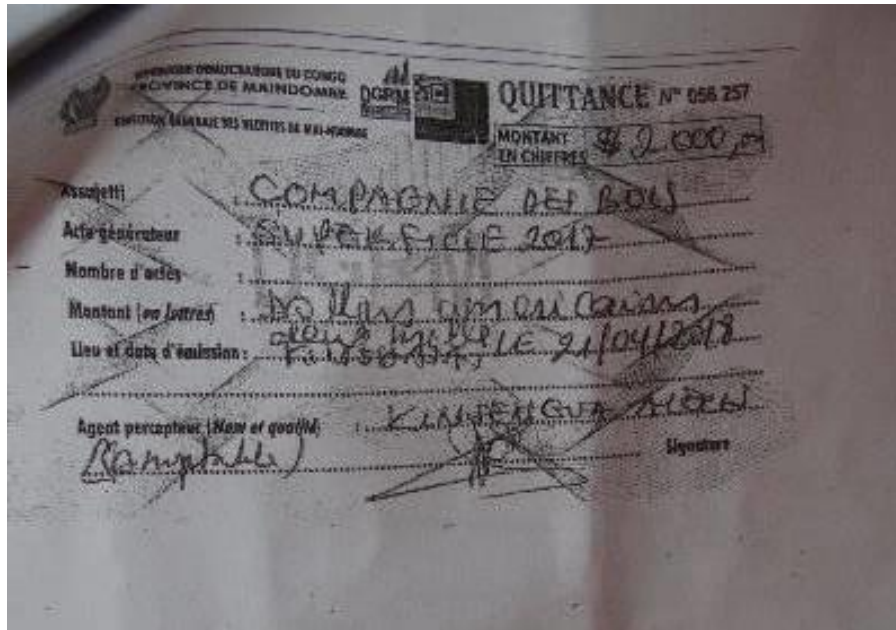 REPUBLIQUE DEMOCRATIQUE DU CONGO
PROVINCE DE MAINDOMBE
DGRM
DIRECTION GENERALE DES RECETTES DE MAI-NDOMBE
QUITTANCE N° 056 257
MONTANT EN CHIFFRES $ 2 000,00
Assujetti : COMPAGNIE DES BOIS
Acte générateur : SUPERFICIE 2017
Nombre d'actes :
Montant (en lettres) : Dollars americains
deux mille
Lieu et date d'émission : KINSHASA, LE 21/04/2018
Agent percepteur (Nom et qualité) :
(Comptable)
Signature